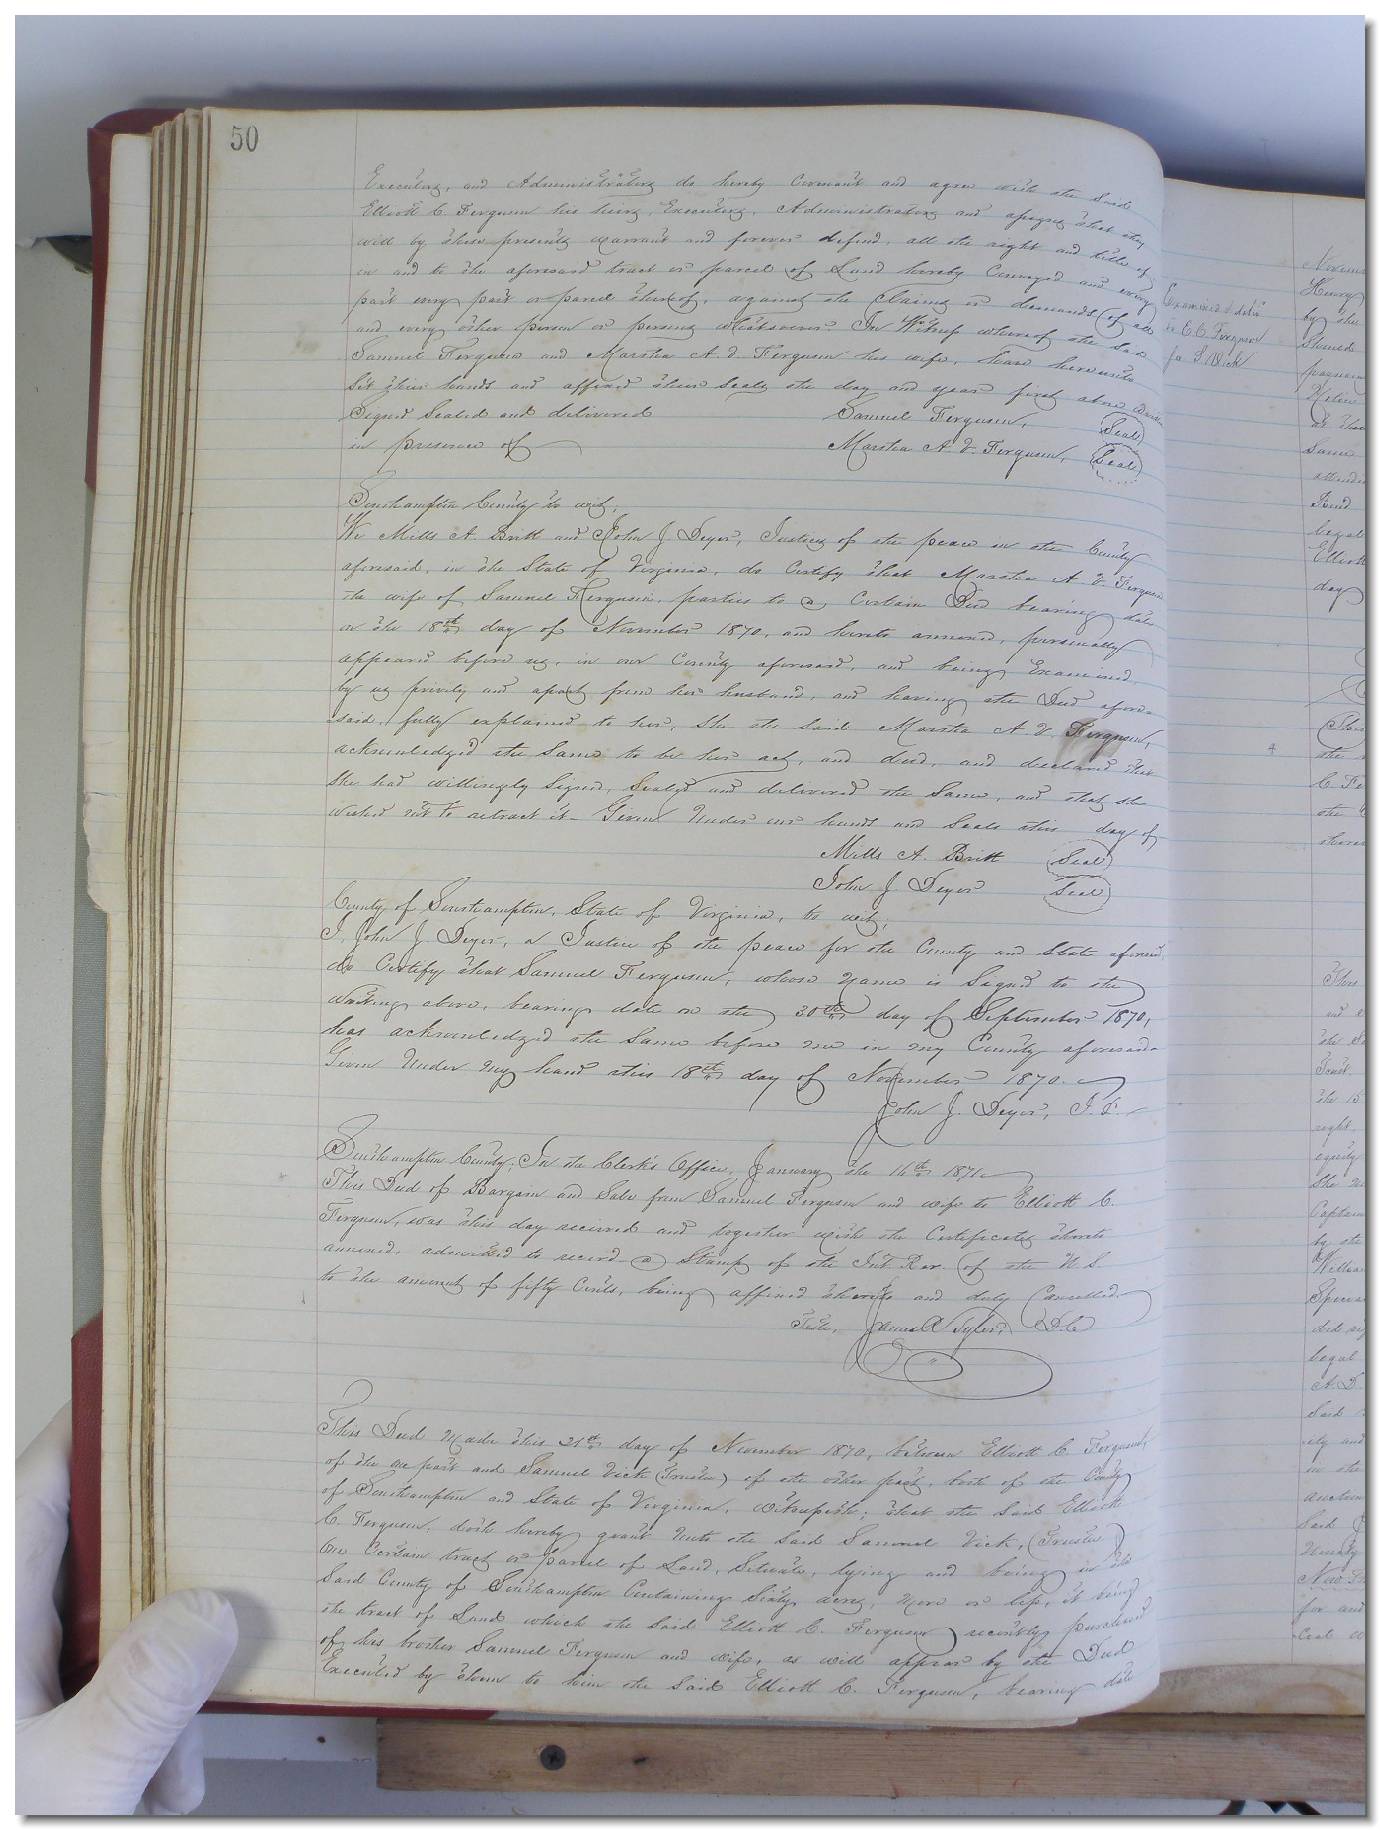 50
Executors, and Administrators do hereby Covenant and agree with the Said
Elliott C. Ferguson his heirs, Executors, Administrators and assigns that they
will by these presents warrant and forever defend, all the right and title of
in and to the aforesaid tract or parcel of Land hereby Conveyed and every
part every part or parcel thereof, against the claims or demands of all
and every other person or persons whatsoever. In Witness whereof the Said
Samuel Ferguson and Martha A. V. Ferguson his wife, have hereunto
Set their hands and affixed their Seals the day and year first above written
Signed Sealed and delivered Samuel Ferguson, (Seal)
in presence of Martha A. V. Ferguson, (Seal)
Southampton County to wit,
We Mills A. Britt and John J Deyer, Justices of the peace in the County
aforesaid, in the State of Virginia, do Certify that Martha A. V. Ferguson
the wife of Samuel Ferguson, parties to a Certain Deed bearing date
on the 18th day of November 1870, and hereto annexed, personally
appeared before us, in our County aforesaid, and being Examined
by us privily and apart from her husband, and having the Deed afore=
said, fully explained to her, She the Said Martha A. V. Ferguson,
acknowledged the Same to be her act, and deed, and declared that
She had willingly Signed, Sealed and delivered the Same, and that she
wished not to retract it - Given Under our hands and Seals this day of
Mills A. Britt (Seal)
John J Deyer (Seal)
County of Southampton, State of Virginia, to wit;
I, John J Deyer, a Justice of the peace for the County and State aforesaid,
do Certify that Samuel Ferguson, whose Name is Signed to the
Writing above, bearing date on the 30th day of September 1870,
has acknowledged the Same before me in my County aforesaid.
Given Under my hand this 18th day of November 1870.
John J. Deyer, J. P.
Southampton County; In the Clerk's Office, January the 16th 1871
This Deed of Bargain and Sale from Samuel Ferguson and wife to Elliott C.
Ferguson, was this day received and together with the Certificates thereto
annexed, admitted to record a Stamp of the Int. Rev. of the U S
to the amount of fifty Cents, being affixed thereto and duly Cancelled.
Teste, James A Tyler, D.C
This Deed Made this 21st day of November 1870, between Elliott C. Ferguson,
of the one part and Samuel Vick (Trustee) of the other part, both of the County
of Southampton and State of Virginia, witnesseth; that the Said Elliott
C. Ferguson, doth hereby grant Unto the Said Samuel Vick, (Trustee)
One Certain tract or parcel of Land, Situate, lying and being in the
Said County of Southampton Containing Sixty acres, More or less, it being
the tract of Land which the Said Elliott C. Ferguson recently purchased
of his brother Samuel Ferguson and wife, as will appear by the Deed
Executed by them to him the Said Elliott C. Ferguson, bearing date
Examined & deliv
to E. C. Ferguson
for S. Vick
Henry
by the
Same
Elliott
day
the
C. Fe
the
This
the
Trust
the 15
right
equity
Captain
by the
legal
A. D.
Said
in the
auction
Said
for and